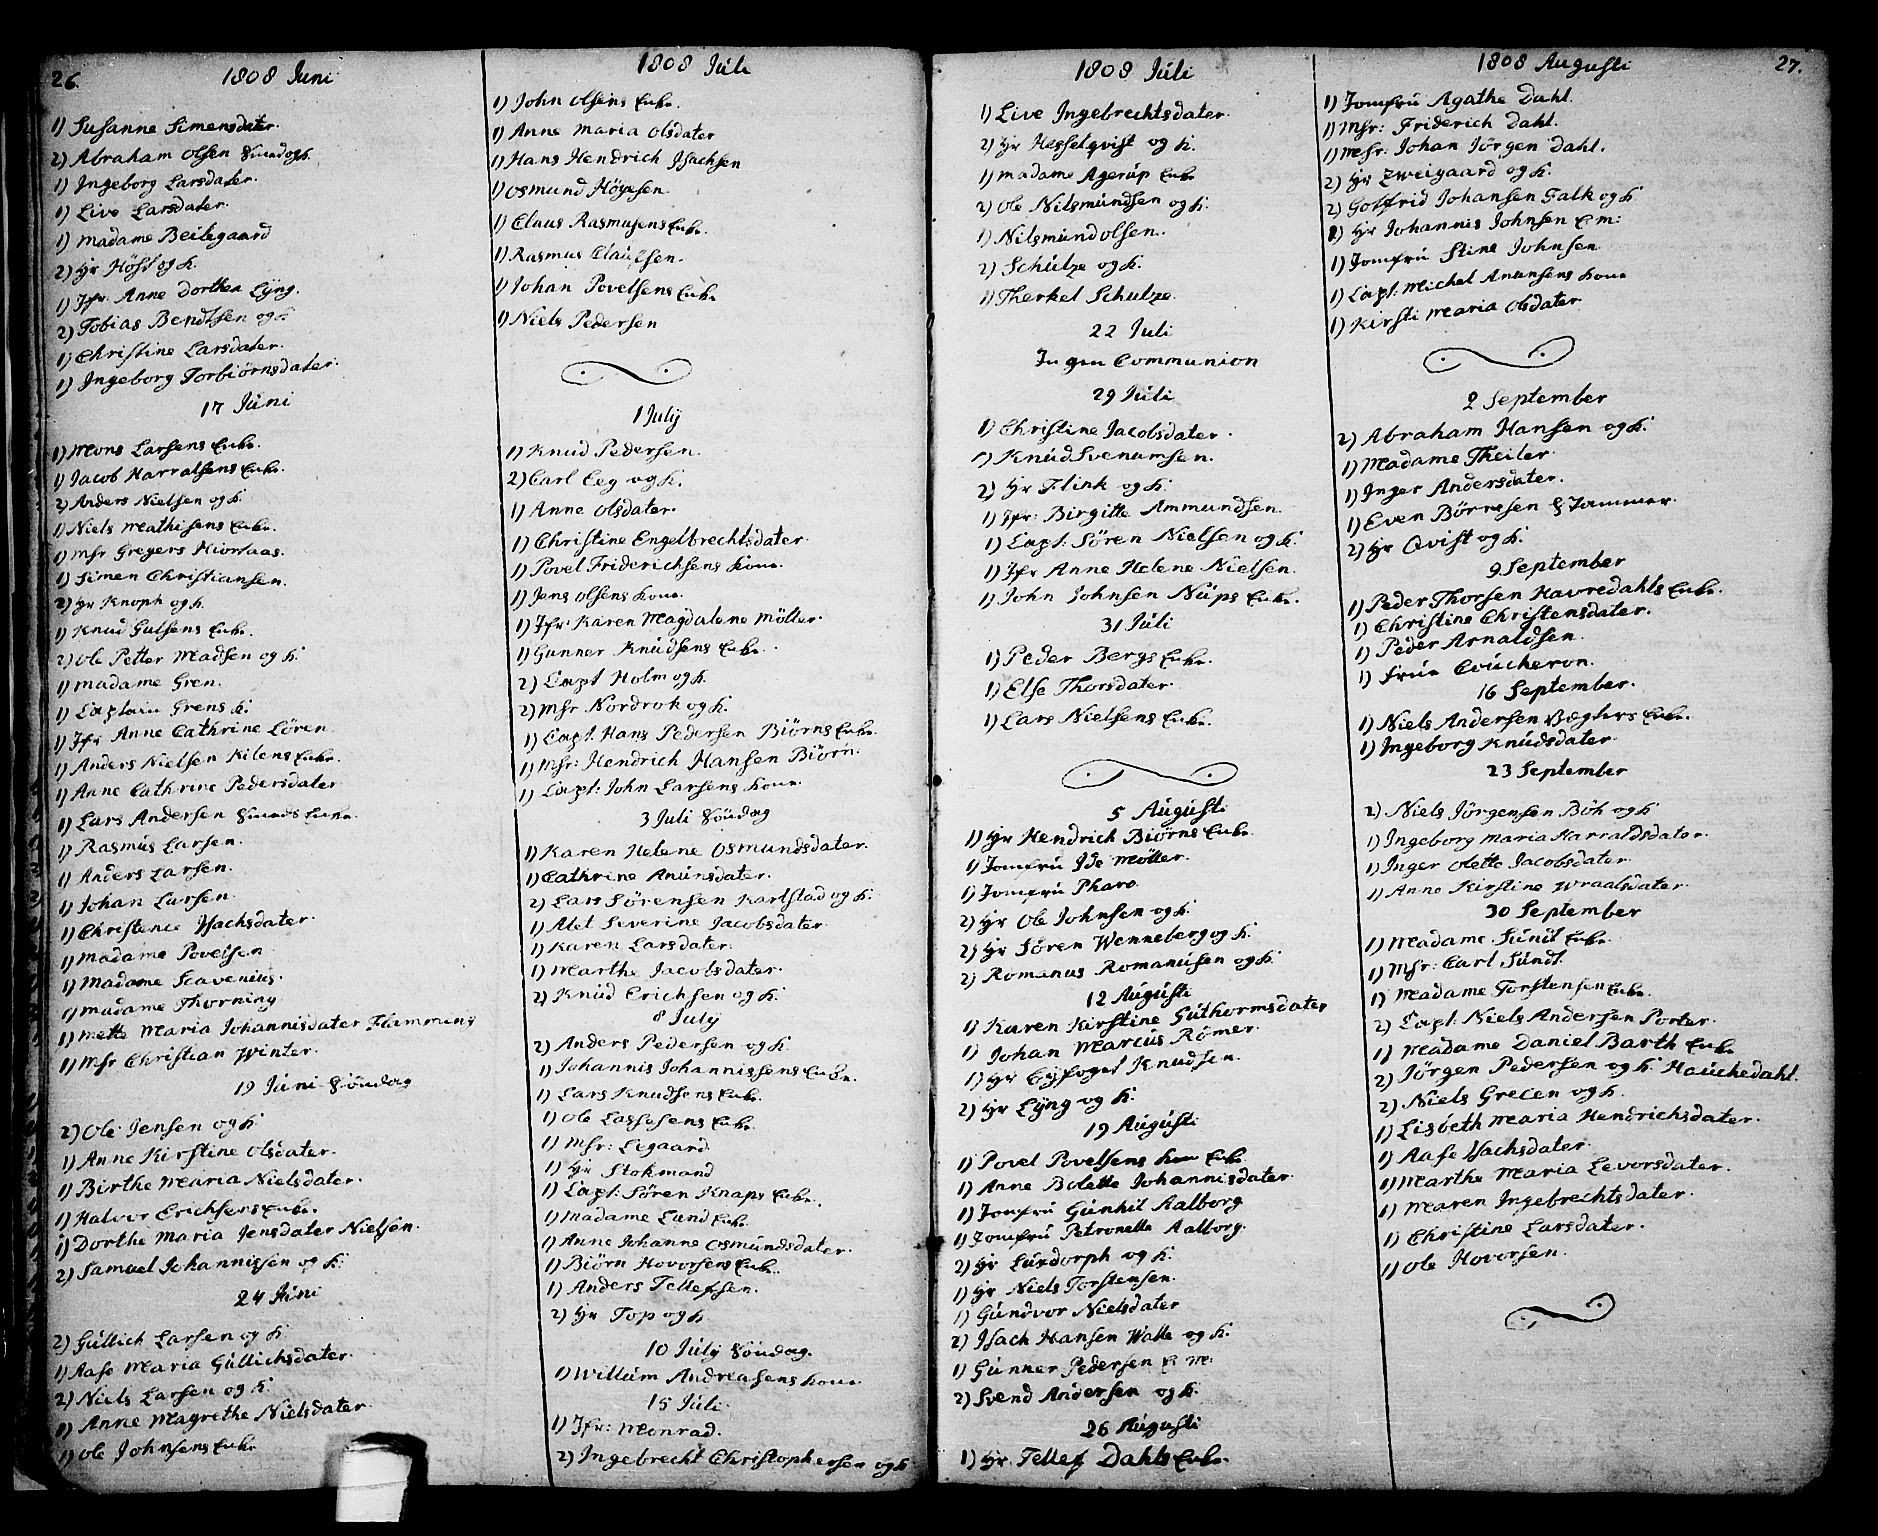 26.
1808 Juni
1) Susanne Simensdater.
2) Abraham Olsen Smed og k.
1) Ingeborg Larsdater.
1) Live Larsdater.
1) Madame Beilegaard
2) Hr Höst og k.
1) Jfr: Anne Dorthea Lÿng.
2) Tobias Bendtsen og k
1) Christine Larsdater.
1) Ingeborg Torbiörnsdater.
17 Juni
1) Mons Larsens Enke.
1) Jacob Harralsens Enke.
2) Anders Nielsen og k.
1) Niels Mathisens Enke.
1) Msr Gregers Hiortaas.
1) Simen Christiansen.
2) Hr Knoph og k.
1) Knud Gulsens Enke.
2) Ole Petter Madsen og k.
1) Madame Gren.
1) Captain Grens k.
1) Jfr Anne Cathrine Lören
1) Anders Nielsen Kilens Enke.
1) Anne Cathrine Pedersdater
1) Lars Andersen Smeds Enke.
1) Rasmus Larsen.
1) Anders Larsen.
1) Johan Larsen.
1) Christence Isachsdater.
1) Madame Povelsen
1) Madame Scavenius.
1) Madame Thorning
1) Mette Maria Johannisdater Flammens
1) Msr Christian Winter.
19 Juni Söndag
2) Ole Jensen og k
1) Anne Kirstine Olsdater.
1) Birthe Maria Nielsdater.
1) Halvor Erichsens Enke.
1) Dorthe Maria Jensdater Nielsen.
2) Samuel Johannissen og k.
24 Juni
2) Gullich Larsen og k
1) Aase Maria Gullichsdater.
2) Niels Larsen og k.
1) Anne Magrethe Nielsdater.
1) Ole Johnsens Enke
1808 Juli
1) John Olsens Enke.
1) Anne Maria Olsdater
1) Hans Hendrich Isachsen
1) Osmund Höyesen
1) Claus Rasmusens Enke.
1) Rasmus Clausen.
1) Johan Povelsens Enke
1) Niels Pedersen
1 July
1) Knud Pedersen.
2) Carl Eeg og k.
1) Anne Olsdater.
1) Christine Engelbrechtsdater
1) Povel Friderichsens kone.
1) Jens Olsens kone.
1) Jfr: Karen Magdalene Möller.
1) Gunner Knudsens Enke.
2) Capt Holm og k.
2) Msr Nordrok og k.
1) Capt. Hans Pedersen Biörns Enke.
1) Msr: Hendrich Hansen Biörn.
1) Capt: John Larsens kone
3 Juli Söndag
1) Karen Helene Osmundsdater.
1) Cathrine Anunsdater.
2) Lars Sörensen Karlstad og k.
1) Alet Severine Jacobsdater
1) Karen Larsdater.
1) Marthe Jacobsdater.
2) Knud Erichsen og k.
8 July
2) Anders Pedersen og k.
1) Johannis Johannissens Enke.
1) Lars Knudsens Enke.
1) Ole Lassesens Enke.
1) Msr: Legaard
1) Hr Stokmand
1) Capt: Sören Knaps Enke.
1) Madame Lund Enke
1) Anne Johanne Osmundsdater.
1) Biörn Hovorsens Enke.
1) Anders Tellefsen.
2) Hr Top og k
10 July Söndag.
1) Willum Andreasens kone
15 Juli.
1) Jfr: Monrad.
2) Ingebrecht Christophersen og k
1808 Juli
1) Live Ingebrechtsdater.
2) Hr Hesselqvist og k.
1) Madame Agerup Enke
2) Ole Nilsmundsen og k.
1) Nilsmund Olsen.
2) Schultze og k.
1) Therkel Schulze.
22 Juli
Ingen Communion
29 Juli
1) Christine Jacobsdater.
1) Knud Svenumsen.
2) Hr Flink og k.
1) Jfr: Birgitte Ammundsen.
1) Capt: Sören Nielsen og k.
1) Jfr Anne Helene Nielsen.
1) John Johnsen Nups Enke.
31 Juli
1) Peder Bergs Enke.
1) Else Thorsdater.
1) Lars Nielsens Enke.
5 Augusti
1) Hr Hendrich Biörns Enke
1) Jomfru Ide Möller.
1) Jomfru Pharo
2) Hr Ole Johnsen og k.
2) Hr Sören Wenneberg og k.
2) Romanus Romanusen og k.
12 Augusti
1) Karen Kirstine Guthormsdater
1) Johan Marcus Römer.
1) Hr Cqfoget Knudsen.
2) Hr Lÿng og k.
19 Augusti
1) Povel Povelsens kone Enke
1) Anne Bolette Johannisdater.
1) Jomfru Gunhil Aalborg
1) Jomfru Petronelle Aalborg.
2) Hr Luxdorph og k.
1) Hr Niels Torstensen.
1) Gundvor Nielsdater
2) Isach Hansen Walle og k.
1) Gunner Pedersen E M:
2) Svend Andersen og k.
26 Augusti
1) Hr. Tellef Dahls Enke.
1808 Augusti
27.
1) Jomfru Agathe Dahl.
1) Msr: Friderich Dahl.
1) Msr: Johan Jörgen Dahl.
2) Hr Zweigaard og k.
2) Gotfrid Johansen Falk og k
1) Hr Johannis Johnsen E M:
1) Jomfru Stine Johnsen
1) Capt: Michel Anunsens kone
1) Kirsti Maria Olsdater
2 September
2) Abraham Hansen og k.
1) Madame Theiler.
1) Inger Andersdater.
1) Even Börresen E Tommer.
2) Hr Qvist og k.
9 September
1) Peder Thorsen Havredahls Enke.
1) Christine Christensdater.
1) Peder Arnaldsen.
1) Frue Coucheron.
16 September.
1) Niels Andersen Vægters Enke.
1) Ingeborg Knudsdater.
23 September
2) Niels Jörgensen Böh og k
1) Ingeborg Maria Harraldsdater.
1) Inger Olette Jacobsdater
1) Anne Kirstine Wraalsdater.
30 September
1) Madame Sundt Enke.
1) Msr: Carl Sundt.
1) Madame Torstensen Enke.
2) Capt. Niels Andersen Porter.
1) Madame Daniel Barth Enke
2) Jörgen Pedersen og k. Hauchedahl.
2) Niels Greeen og k.
1) Lisbeth Maria Hendrichsdater.
1) Aase Isachsdater.
1) Marthe Maria Levorsdater.
1) Maren Ingebrechtsdater.
1) Christine Larsdater.
1) Ole Hovorsen.